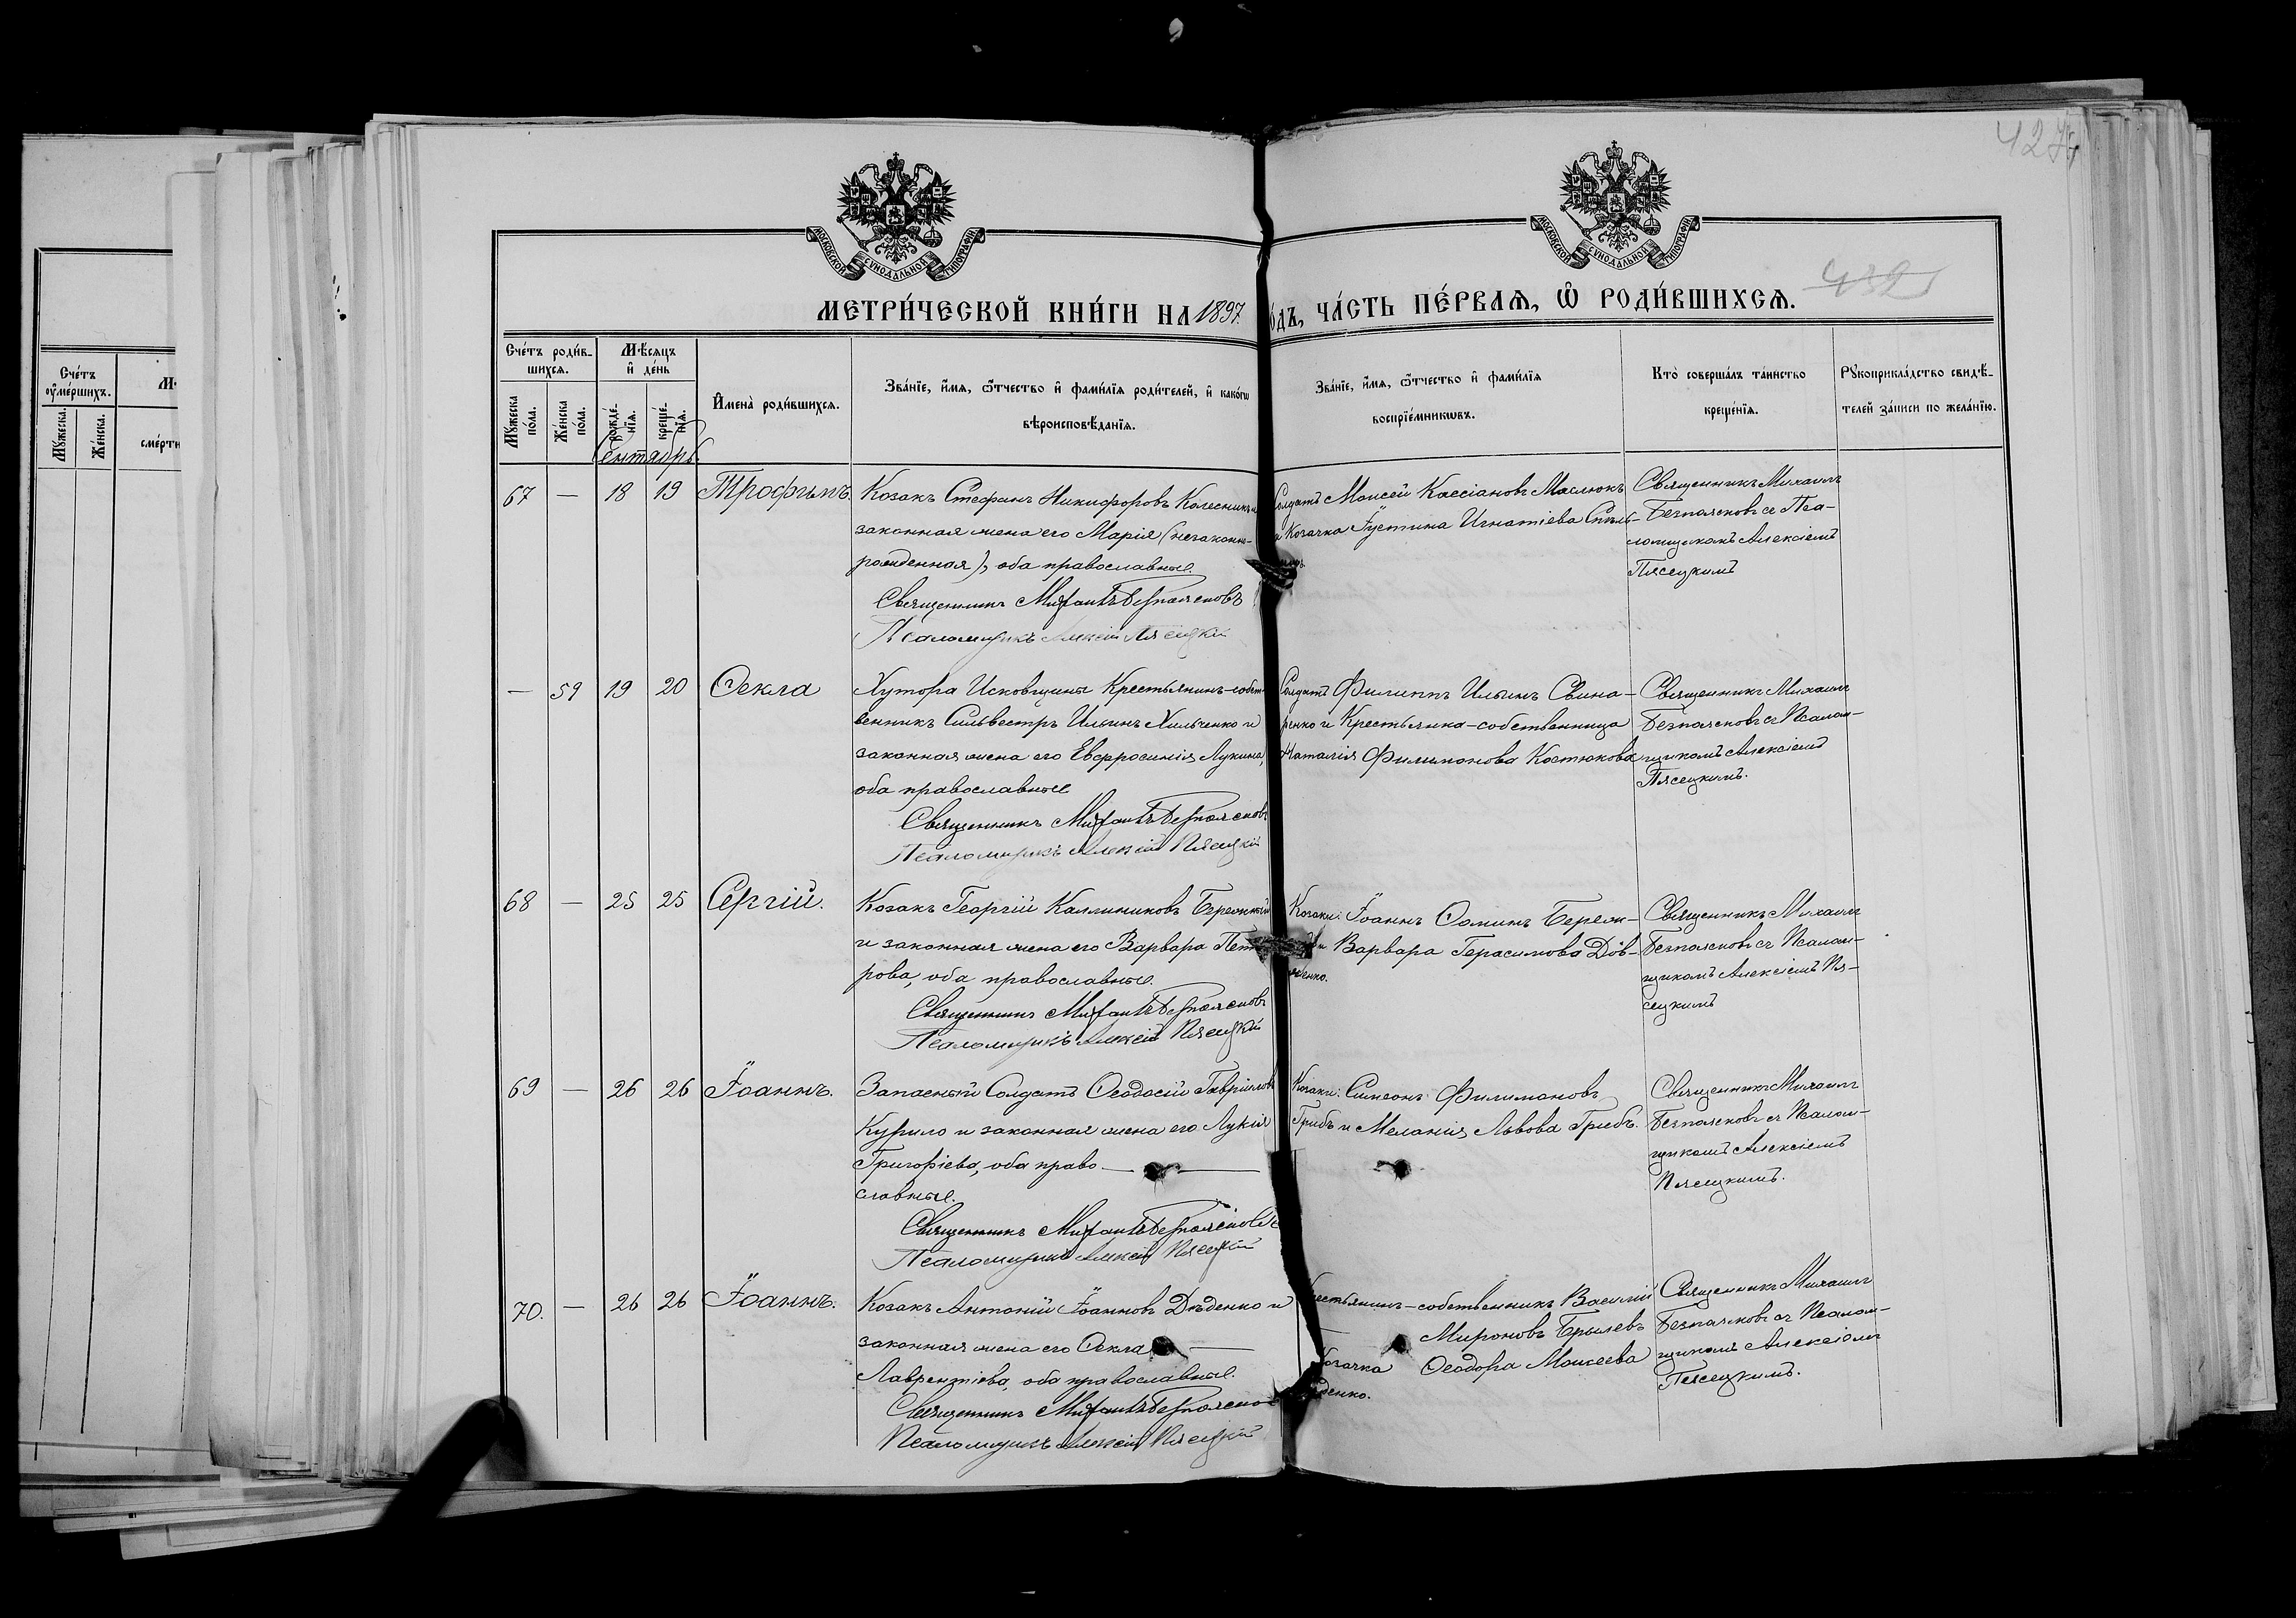 427
МОСКОВСКОЙ СѴНОДАЛЬНОЙ ТИПОГРАФІИ
МОСКОВСКОЙ СѴНОДАЛЬНОЙ ТИПОГРАФІИ
432
МЕТРИ́ЧЕСКОЙ КНИ́ГИ НА 1897. ГО́ДЪ, ЧА́СТЬ ПЕ́РВАѦ, Ѡ҆ РОДИ́ВШИХСѦ.
Сче́тъ
ᲂу҆ме́ршихъ.
Мꙋ́жеска.
Же́нска.
М
сме́рти
Сче́тъ роди́в-
шихсѧ.
Мꙋ́жеска по́ла.
Же́нска по́ла.
Мѣ́сѧцъ
и҆ де́нь
рожде́-нїѧ.
креще́-нїѧ.
И҆мена̀ роди́вшихсѧ.
Зва́нїе, и҆́мѧ, ѻ҆́тчество и҆ фами́лїѧ роди́телей, и҆ како́гѡ
вѣроисповѣ́данїѧ.
Зва́нїе, и҆́мѧ, ѻ҆́тчество и҆ фами́лїѧ
воспрїе́мникѡвъ.
Кто̀ соверша́лъ та́инство
креще́нїѧ.
Рꙋкоприкла́дство свидѣ́-
телей за́писи по жела́нїю.
Сентябрь
67 — 18 19 Трофимъ.
Козакъ Стефанъ Никифоровъ Колесникъ и
законная жена его Марія (незаконно-
рожденная), оба православные.
Священникъ Михаилъ Безпаясновъ
Псаломщикъ Алексій Пясецкій
Солдатъ Моисей Кассіановъ Маслюкъ
и Козачка Іустина Игнатіева
Священникъ Михаилъ
Безпаясновъ съ Пса-
ломщикомъ Алексіемъ
Пясецкимъ
— 59 19 20 Ѳекла
Хутора Исковщины Крестьянинъ-собст-
венникъ Сильвестръ Ильинъ Хильченко и
законная жена его Евфросинія Лукина,
оба православные
Священникъ Михаилъ Безпаясновъ
Псаломщикъ Алексій Пясецкій
Солдатъ Филиппъ Ильинъ Свина-
ренко и Крестьянка-собственница
Наталія Филимонова Костюкова
Священникъ Михаилъ
Безпаясновъ съ Псалом-
щикомъ Алексіемъ
Пясецкимъ.
68 — 25 25 Сергій.
Козакъ Георгій Каллиниковъ Бережный
и законная жена его Варвара Пет-
рова, оба православные.
Священникъ Михаилъ Безпаясновъ
Псаломщикъ Алексій Пясецкій
Козаки: Іоаннъ Ѳоминъ Береж-
и Варвара Герасимова Дов-
женко.
Священникъ Михаилъ
Безпаясновъ съ Псалом-
щикомъ Алексіемъ Пя-
сецкимъ
69 — 26 26 Іоаннъ.
Запасный Солдатъ Ѳеодосій Гавріиловъ
Курило и законная жена его Лукія
Григоріева, оба право-
славные.
Священникъ Михаилъ Безпаясновъ
Псаломщикъ Алексій Пясецкій
Козаки: Симеонъ Филимоновъ
Грибъ и Меланія Львова Грибъ.
Священникъ Михаилъ
Безпаясновъ съ Псалом-
щикомъ Алексіемъ
Пясецкимъ.
70. — 26 26 Іоаннъ.
Козакъ Антоній Іоанновъ Дѣденко и
законная жена его Ѳекла
Лаврентіева, оба православные.
Священникъ Михаилъ Безпаясновъ
Псаломщикъ Алексій Пясецкій
Крестьянинъ-собственникъ Василій
Мироновъ Брылевъ
Козачка Ѳеодора Моисеева
Дѣденко.
Священникъ Михаилъ
Безпаясновъ съ Псалом-
щикомъ Алексіемъ
Пясецкимъ.